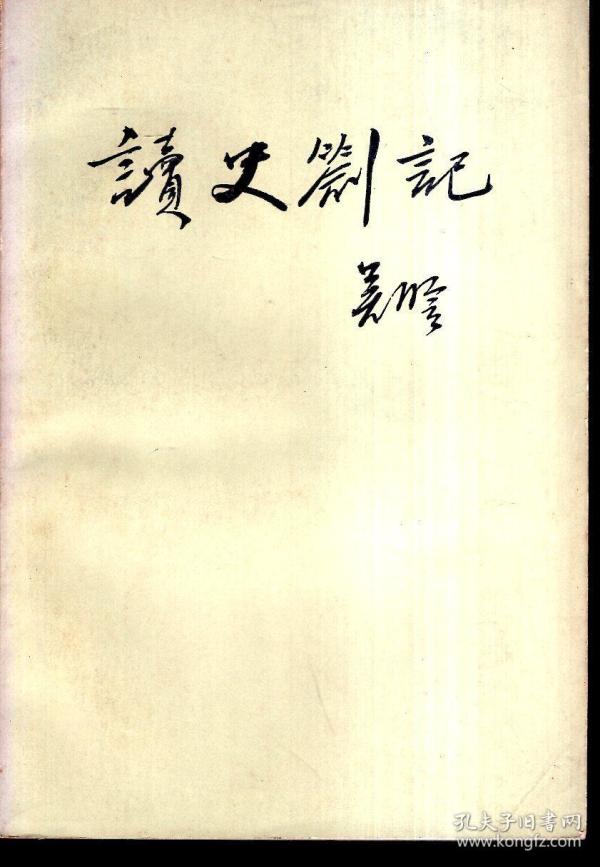 讀史劄記
吴晗
孔夫子旧书网
www.kongfz.com